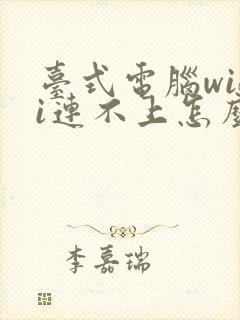 臺式電腦wif
i連不上怎麼
李嘉瑞